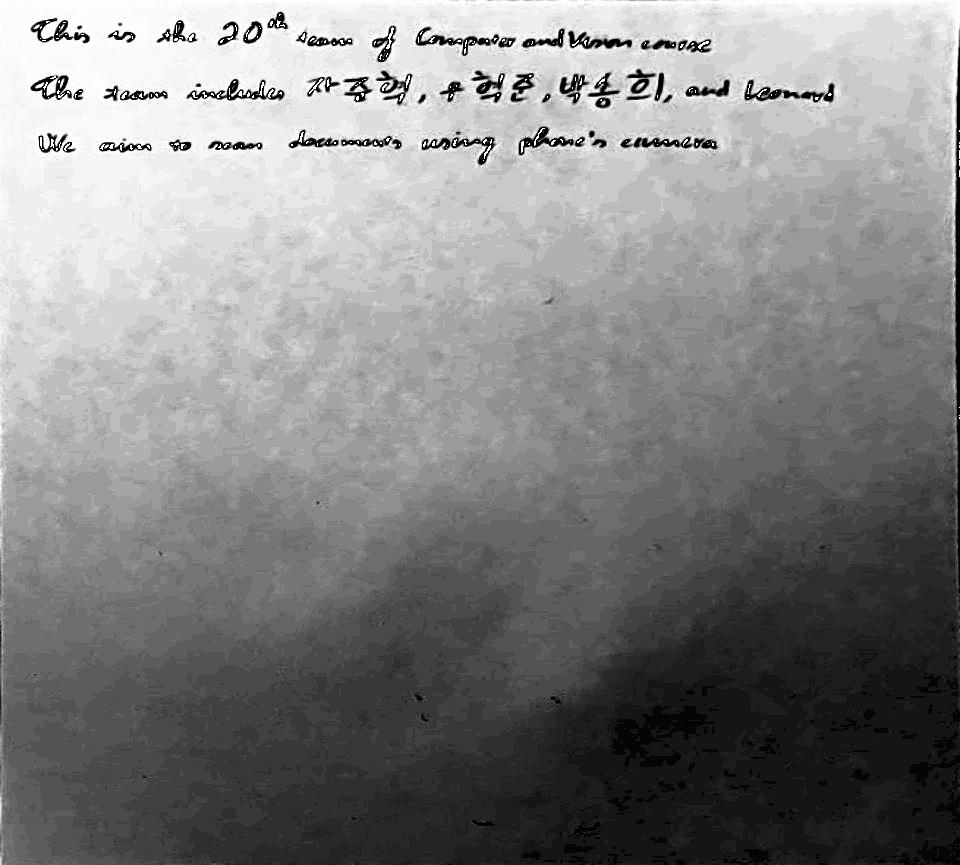 This is the 20th team of Computer and Vision course
The team includes 차중혁, 우혁준, 박송희, and Leonard
We aim to scan documents using phone's camera